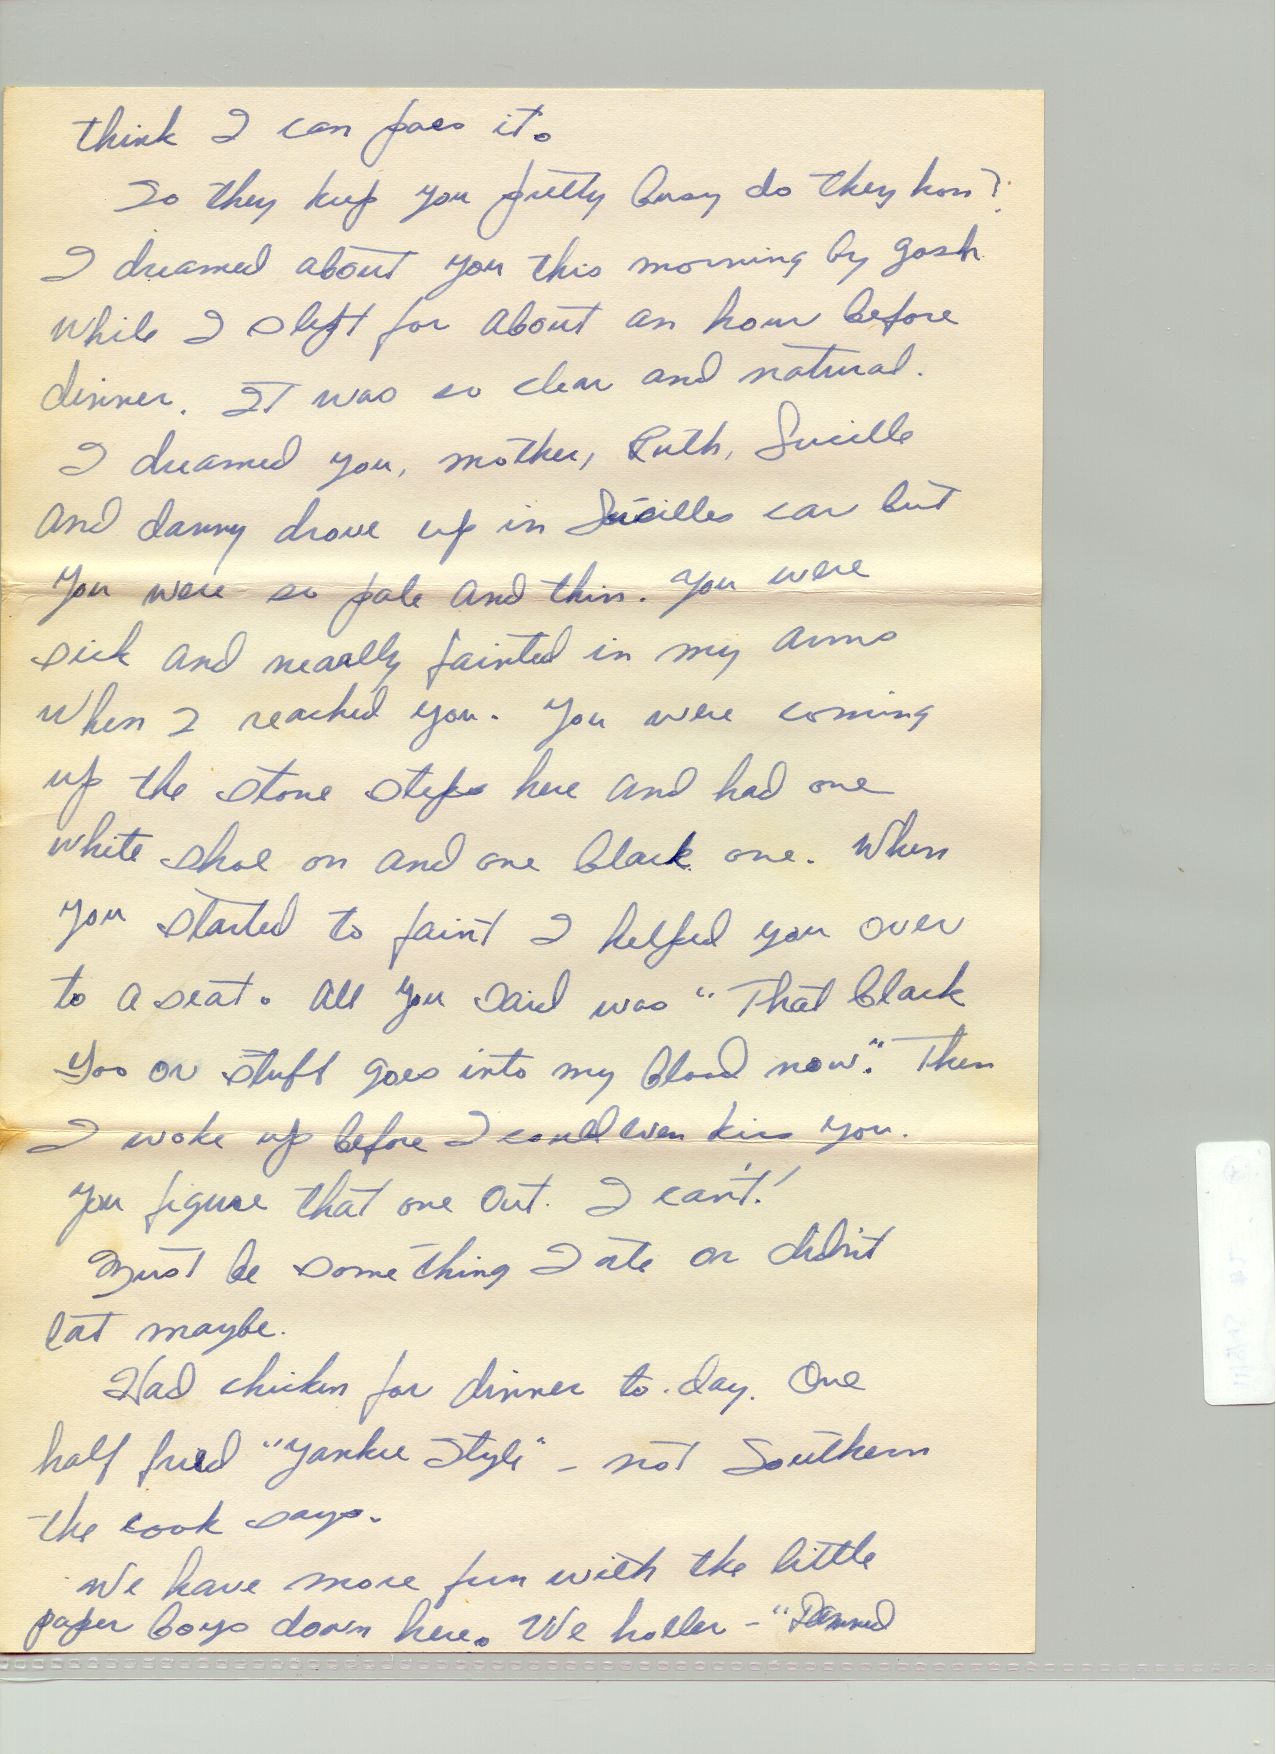 think I can pass it.
So they keep you pretty busy do they hon?
I dreamed about you this morning by gosh
while I slept for about an hour before
dinner. It was so clear and natural.
I dreamed you, mother, Ruth, Lucille
and danny drove up in Lucilles car but
you were so pale and thin. You were
sick and neaally fainted in my arms
when I reached you. You were coming
up the stone steps here and had one
white shoe on and one black one. When
you started to faint I helped you over
to a seat. All you said was "That black
goo or stuff goes into my blood now". Then
I woke up before I could even kiss you.
You figure that one out. I can't!
Must be something I ate or didn't
eat maybe.
Had chicken for dinner to-day. One
half fried "Yankee Style" - not Southern
the cook says.
We have more fun with the little
paper boys down here. We holler - "Damned